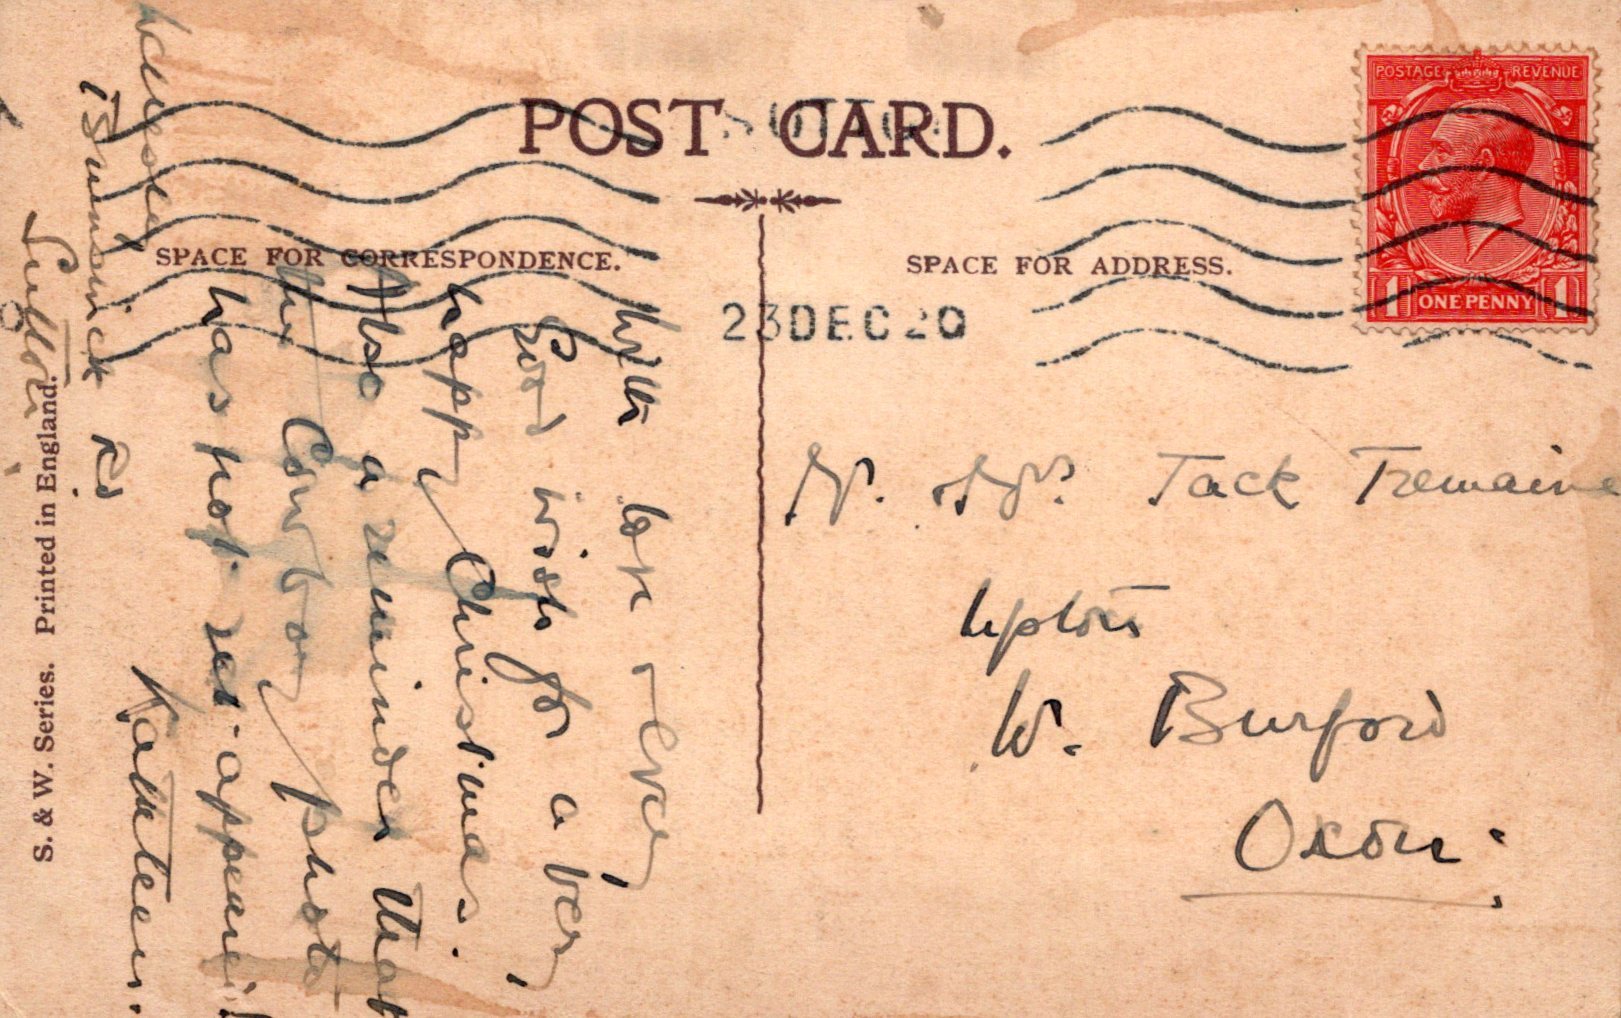 POST CARD.
SPACE FOR CORRESPONDENCE.
SPACE FOR ADDRESS.
POSTAGE REVENUE
1 ONE PENNY 1
23 DEC 20
With love & every
Good wish for a very
happy Christmas.
Also a reminder that
the Cowboy photo
has not re-appeared!
Kathleen.
Brunswick Rd
Sutton
Mr. & Mrs. Jack Tremaine
Upton
W. Burford
Oxon:
S. & W. Series. Printed in England.